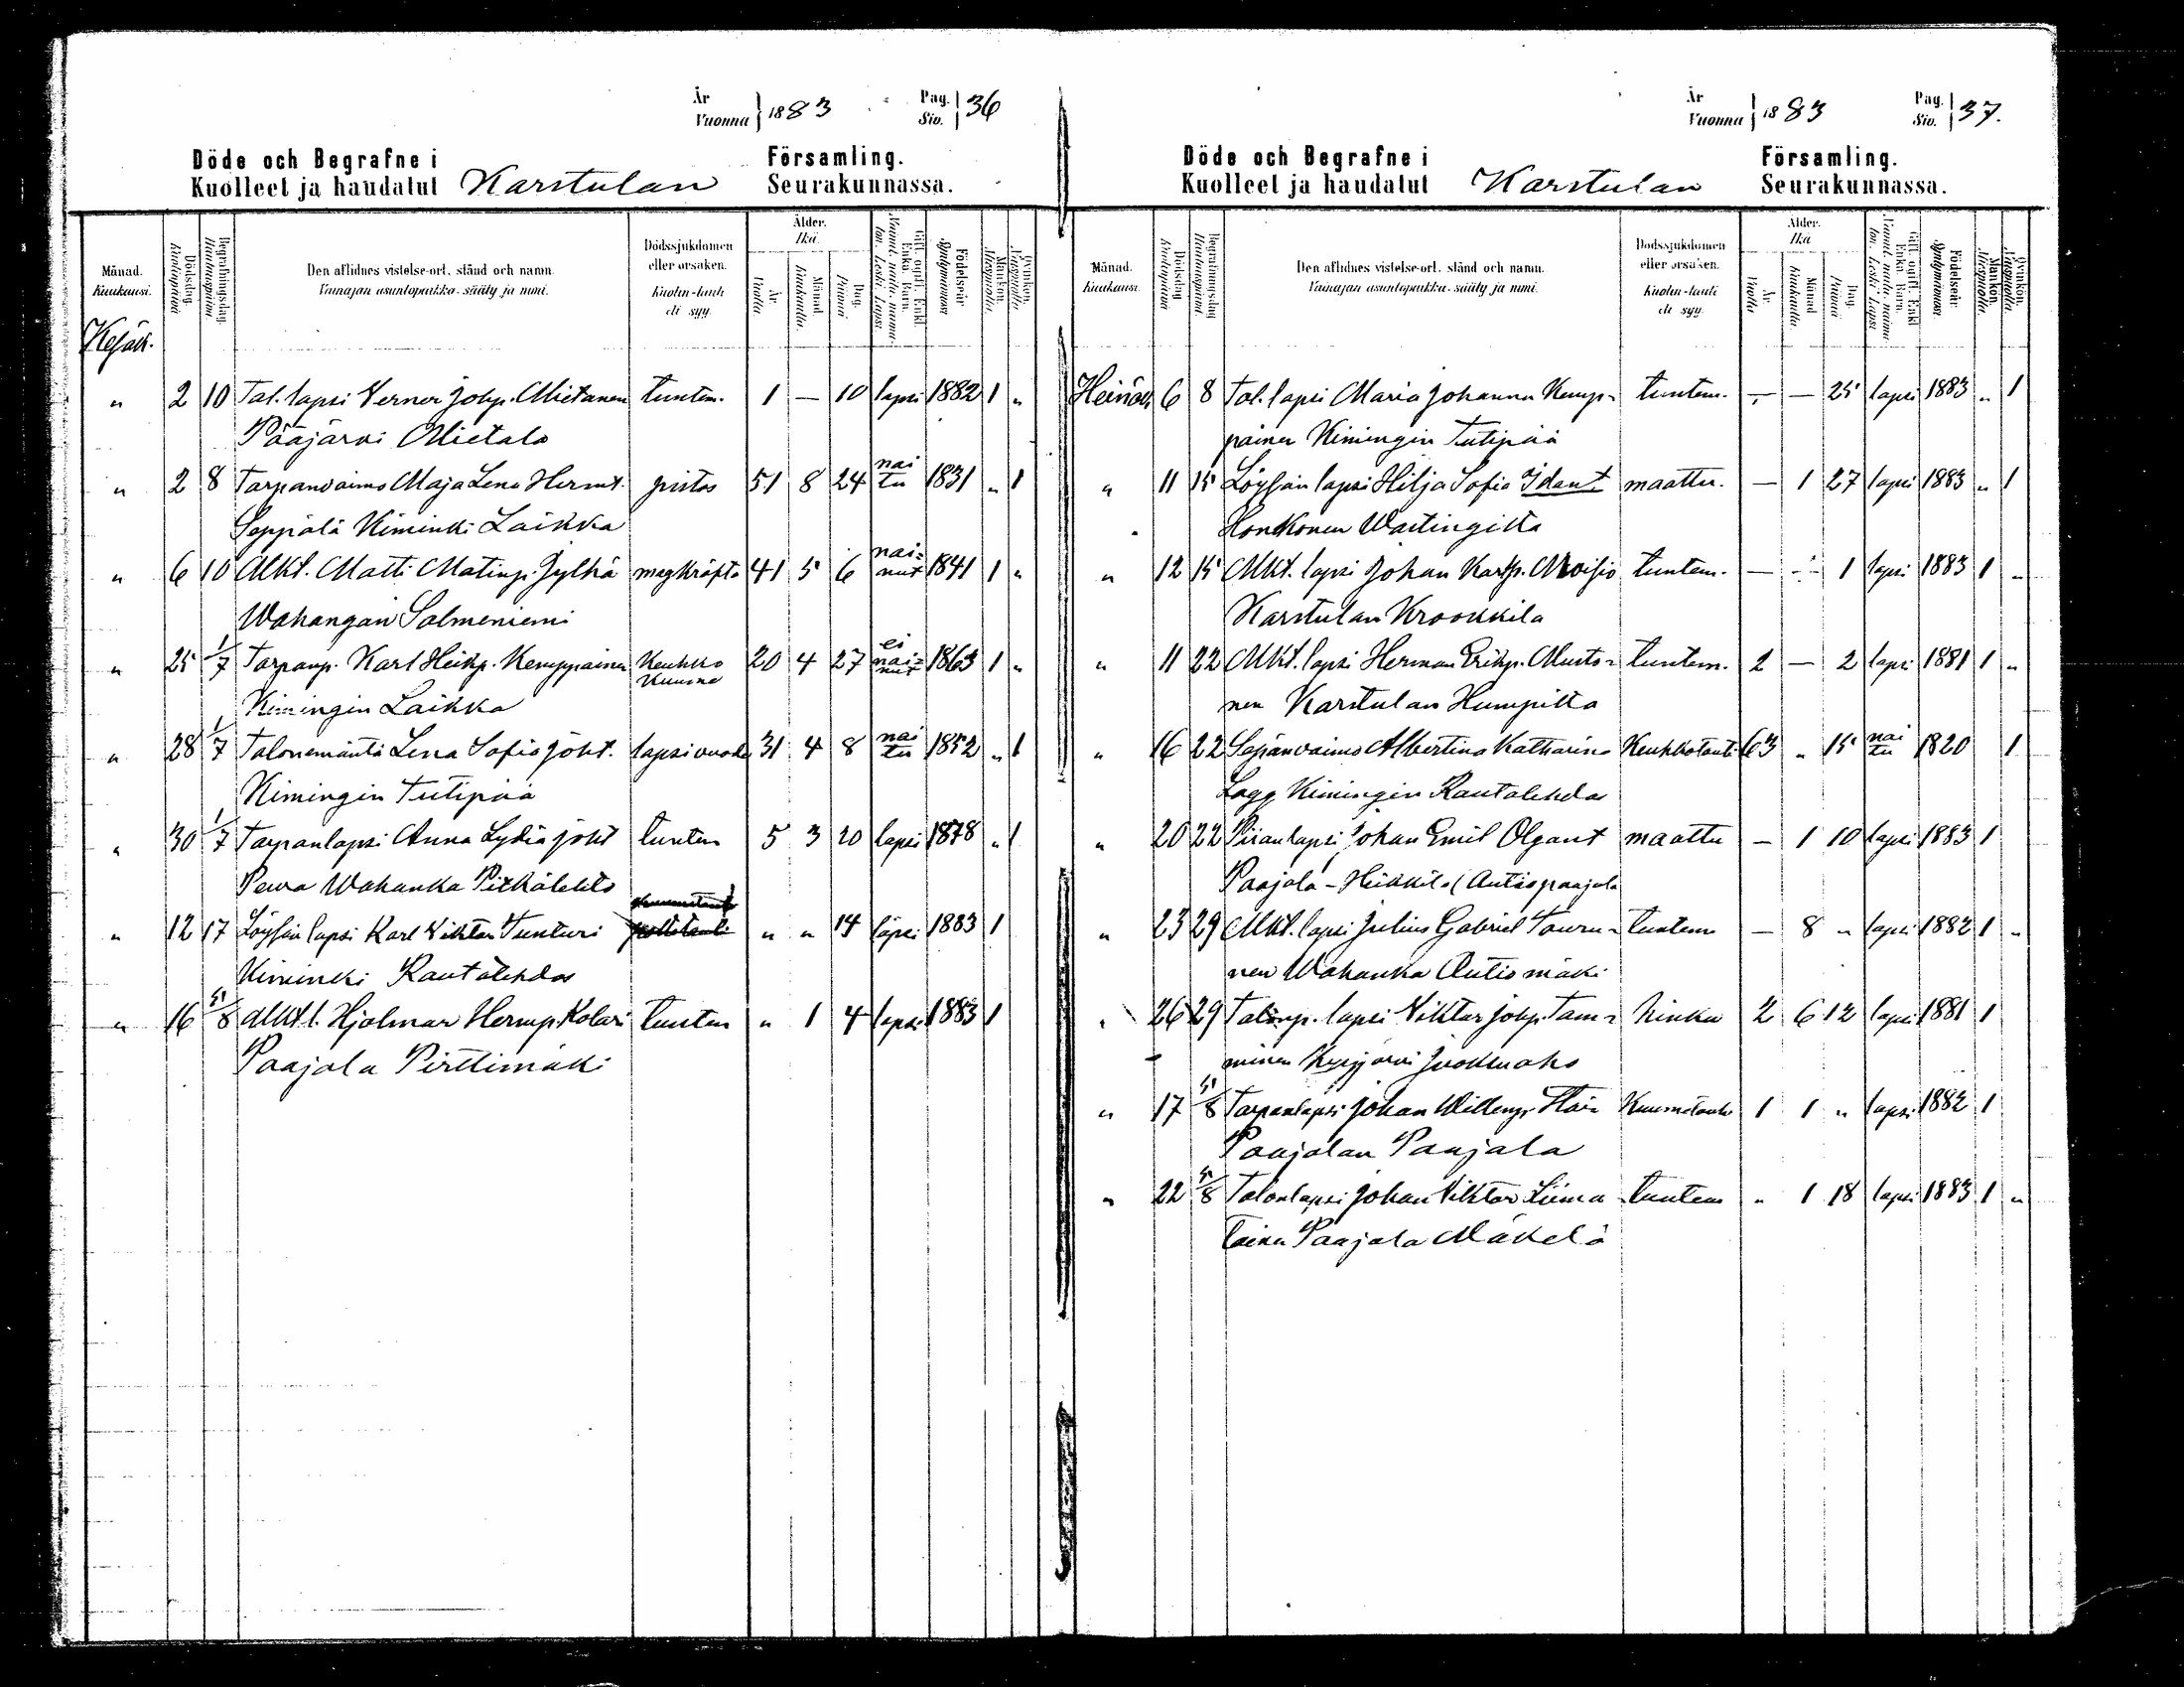 År
Vuonna } 1883 Pag.
Siv. | 36
Döde och Begrafne i Församling.
Kuolleet ja haudatut Karstulan Seurakunnassa.
Månad.
Kuukausi.
Dödsdag.
Kuolinpäivä
Begrafningsdag.
Hautauspäivä
Den aflidnes vistelse-ort, stånd och namn.
Vainajan asuntopaikka, sääty ja nimi.
Dödssjukdomen
eller orsaken.
Kuolin-tauti
eli syy.
Ålder.
Ikä.
År.
Vuotta
Månad.
Kuukautta
Dag.
Päivää
Gift, ogift, Enkl.
Enka, Barn.
Födelseår.
Syntymävuosi
Mankön.
Miespuolta.
Qvinkön.
Vaimopuolta
Kesäk.
" 2 10 Tal. lapsi Verner Johp. Mietanen tuntem. 1 — 10 lapsi 1882 1 "
Pääjärvi Mietala
" 2 8 Torpanvaimo Maja Lena Hermt. pistos 51 8 24 nai
tu 1831 " 1
Seppälä Kiminki Laikka
" 6 10 Mkt. Matti Matinp. Jylhä magkräfta 41 5 6 nai=
nut 1841 1 "
Wahangan Salmeniemi
" 25 1/7 Torpanp. Karl Heikp. Kemppainen Keuhko
kuume 20 4 27 ei
nai=
nut 1863 1 "
Kimingin Laikka
" 28 1/7 Talonemäntä Lena Sofia Joht. lapsivuode 31 4 8 nai
tu 1852 " 1
Kimingin Tutipää
" 30 1/7 Torpanlapsi Anna Lydia Joht tuntem 5 3 20 lapsi 1878 " 1
Perra Wahanka Pitkälehto
" 12 17 Löysän lapsi Karl Viktor Tunturi " " 14 lapsi 1883 1
Kiminki Rautatehdas
" 16 5/8 Mkt l. Hjalmar Hermp. Kolari tuntem " 1 4 lapsi 1883 1
Paajala Pirttimäki
År
Vuonna } 1883 Pag.
Siv. | 37.
Döde och Begrafne i Församling.
Kuolleet ja haudatut Karstulan Seurakunnassa.
Månad.
Kuukausi.
Dödsdag.
Kuolinpäivä
Begrafningsdag
Hautauspäivä
Den aflidnes vistelse-ort, stånd och namn.
Vainajan asuntopaikka, sääty ja nimi.
Dödssjukdomen
eller orsaken.
Kuolin-tauti
eli syy.
Ålder.
Ikä
År.
Vuotta
Månad
Kuukautta
Dag.
Päivää
Gift, ogift, Enkl
Enka, Barn.
Födelseår.
Syntymävuosi.
Mankön.
Miespuolta.
Qvinkön.
Vaimopuolta
Heinäk. 6 8 Tal. lapsi Maria Johanna Kemp- tuntem. — — 25 lapsi 1883 " 1
painen Kimingin Tutipää
" 11 15 Löysän lapsi Hilja Sofia Idant maattu. — 1 27 lapsi 1883 " 1
Honkonen Wastingilta
" 12 15 Mkt. lapsi Johan Karlp. Moisio tuntem. — — 1 lapsi 1883 1 "
Karstulan Krookkila
" 11 22 Mkt. lapsi Herman Erikp. Musto- tuntem. 2 — 2 lapsi 1881 1 "
nen Karstulan Humpilta
" 16 22 Sepänvaimo Albertina Katharina Keuhkotauti 63 " 15 nai
tu 1820 1
Lagg Kimingin Rautatehdas
" 20 22 Piianlapsi Johan Emil Olgant maattu — 1 10 lapsi 1883 1
Paajala - Heikkilä (Autiopaajala
" 23 29 Mkt. lapsi Julius Gabriel Touru- tuntem — 8 " lapsi 1882 1 "
nen Wahanka Autiomäki
" 26 29 Talonp. lapsi Viktor Johp. Tam- hinku 2 6 12 lapsi 1881 1
minen Kyyjärvi Juokuaho
" 17 5/8 Torpanlapsi Johan Willemp. Kuumetauti 1 1 " lapsi 1882 1
Paajalan Paajala
" 22 5/8 Talonlapsi Johan Viktor Liima tuntem " 1 18 lapsi 1883 1 "
tainen Paajala Mäkelä